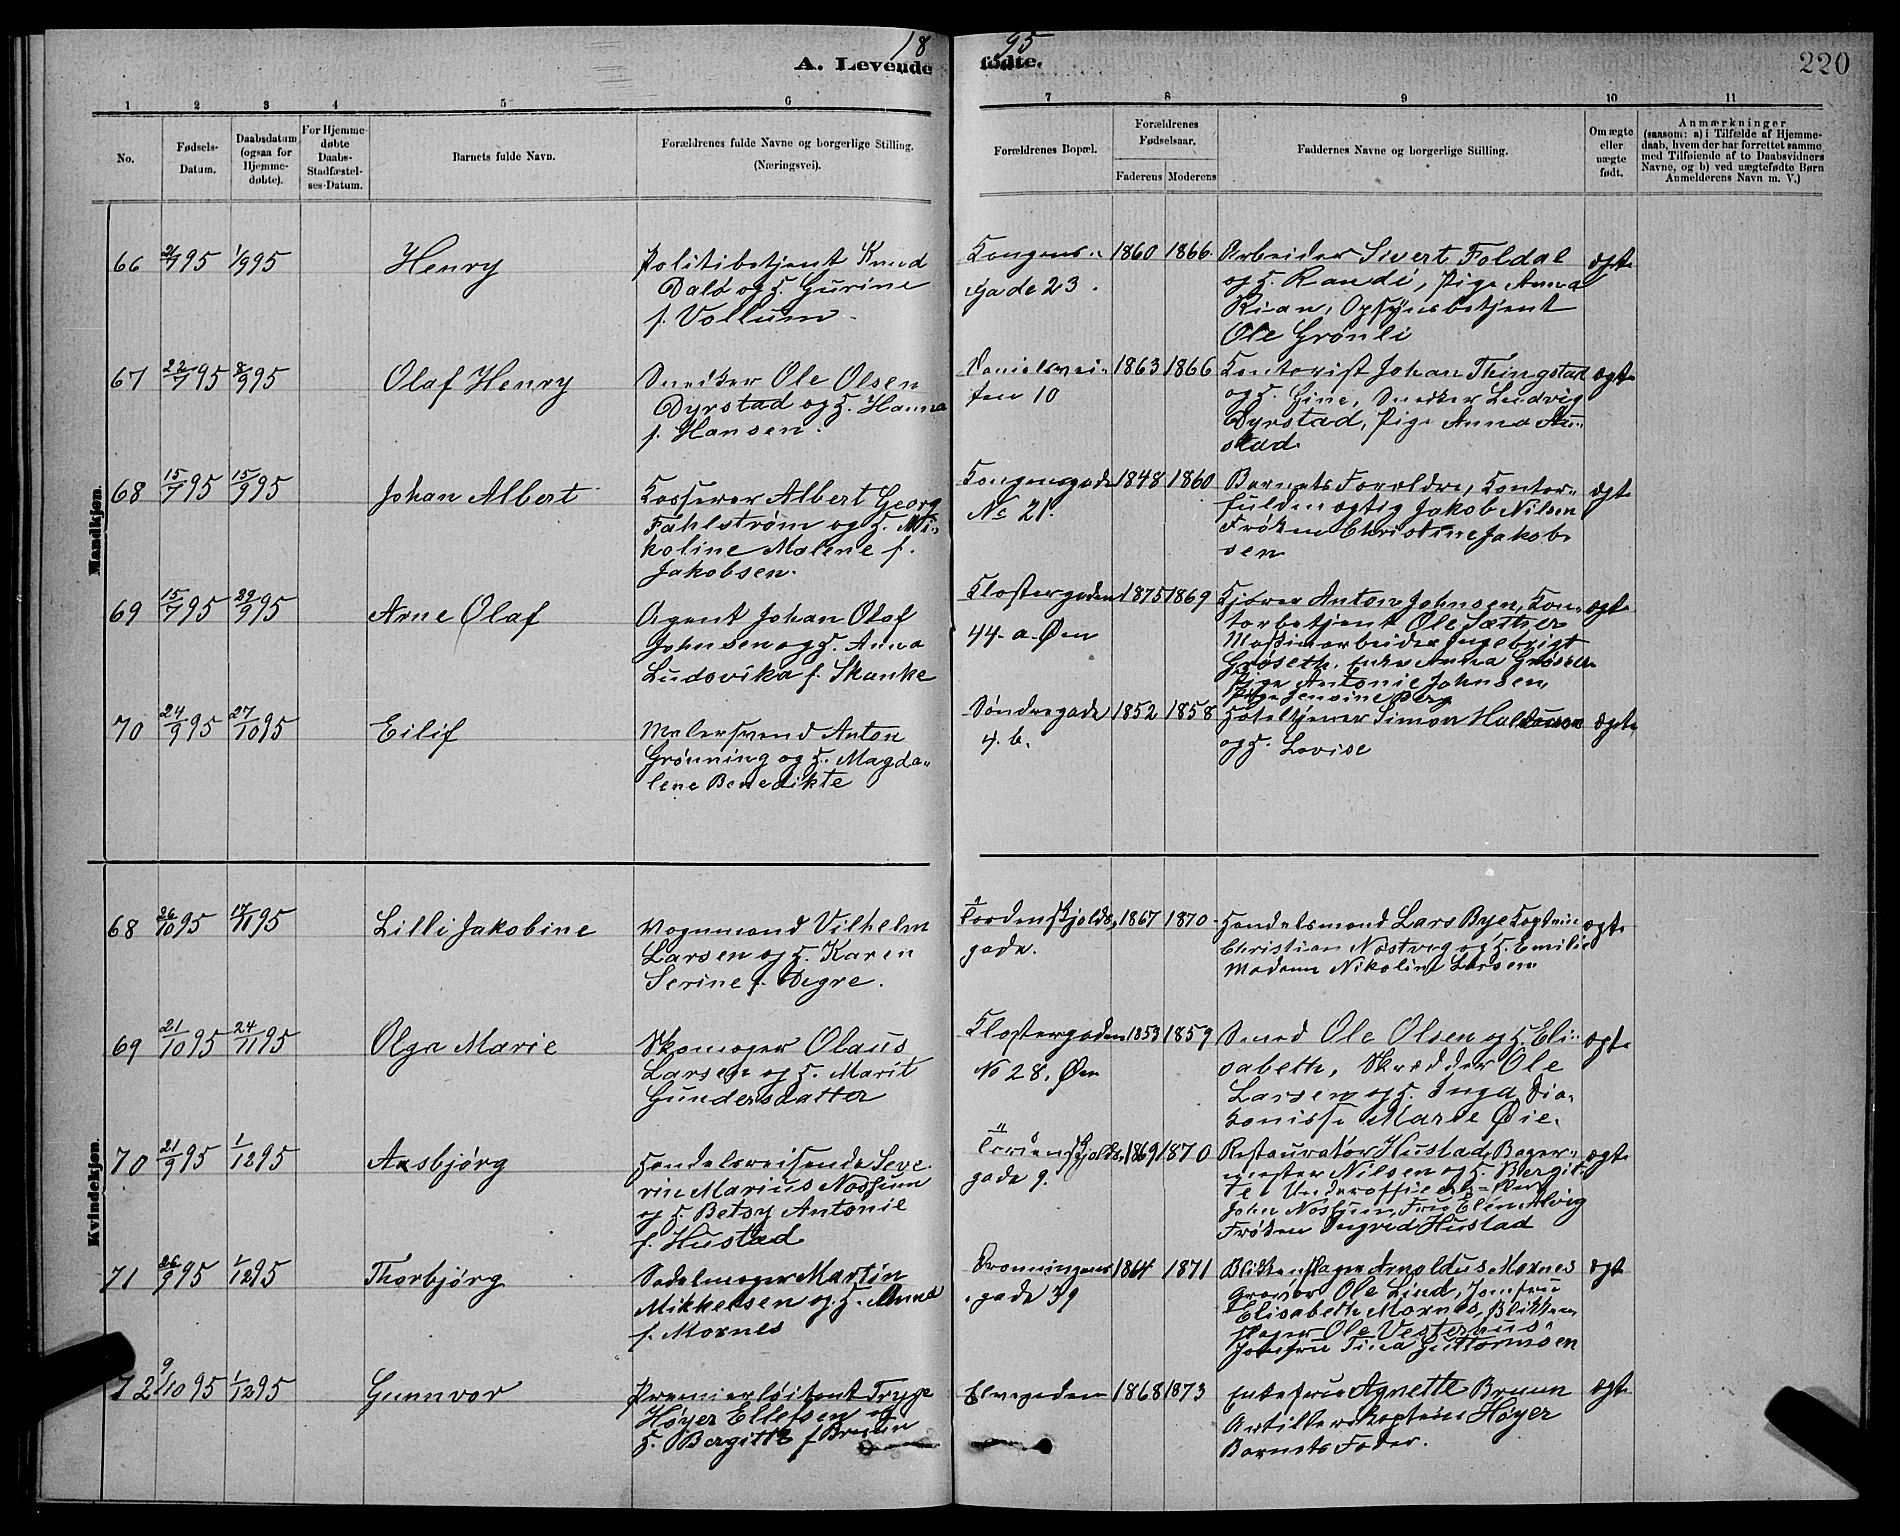 1895
A. Levende fødte.
220
1 2 3 4 5 6 7 8 9 10 11
No.
Fødsels-Datum.
Daabsdatum (ogsaa for Hjemme-døbte).
For Hjemme-døbte Daabs-Stadfæstel-ses-Datum.
Barnets fulde Navn.
Forældrenes fulde Navne og borgerlige Stilling. (Næringsvei).
Forældrenes Bopæl.
Forældrenes Fødselsaar.
Faderens Moderens
Faddernes Navne og borgerlige Stilling.
Om ægte eller uægte født.
Anmærkninger
(saasom: a) i Tilfælde af Hjemme-
daab, hvem der har forrettet samme
med Tilføiende af to Daabsvidners
Navne, og b) ved uægtefødte Børn
Anmelderens Navn m. V.)
Mandkjøn.
66 95 1/9 95 Henry
Politibetjent Knud
Dalø og H. Gurine
f. Vollum.
Kongens-
gade 23.
1860 1866.
Arbeider Sivert Foldal
og H. Randi, Pige Anna
Rian, Opsynsbetjent
Ole Grønli
ægte
67 22/7 95 8/9 95 Olaf Henry
Snedker Ole Olsen
Dyrstad og H. Hanna
f. Hansen.
Danielsvei-
ten 10
1863 1866
Kontorist Johan Thingstad
og H. Gine, Snedker Ludvig
Dyrstad, Pige Anna Au-
stad
ægte
68 15/7 95 15/9 95 Johan Albert
Kasserer Albert Georg
Fahlstrøm og H. Ni-
koline Malene f.
Jakobsen.
Kongensgade
No 21.
1848 1860
Barnets Forældre, Kontor-
fuldmægtig Jakob Nilsen
Frøken Christine Jakob-
sen
ægte
69 15/7 95 29/9 95 Arne Olaf
Agent Johan Olaf
Johnsen og H. Anna
Ludovika f. Skanke
Klostergaden
44.a. Øen
1875 1869
Kjører Anton Johnsen, Kon-
torbetjent Ole Sæther
Maskinarbeider Ingebrigt
Grøseth, Enke Anna Grøseth
Pige Antonie Johnsen,
Pige Jensine Berg
ægte
70 24/9 95 27/10 95 Eilif
Malersvend Anton
Grønning og H. Magda-
lene Benedikte
Søndregade
4.b.
1852 1858
Hoteltjener Simon
og H. Lovise
ægte
Kvindekjøn.
68 26/10 95 17/11 95 Lilli Jakobine
Vognmand Vilhelm
Larsen og H. Karen
Serine f. Degre.
Tordenskjolds
gade.
1867 1870
Handelsmand Lars Bye Kaptein
Christian Næstvig og H. Emilie
Madam Nikoline Larsen
ægte
69 21/10 95 24/11 95 Olga Marie
Skomager Olaus
Larsen og H. Marit
Gundersdatter
Klostergaden
No 28. Øen
1853 1859
Smed Ole Olsen og H. Eli-
sabeth, Skrædder Ole
Larsen og H. Inga, Dia-
konisse Marie Øie.
ægte
70 21/9 95 1/12 95 Aasbjørg
Handelsreisende Seve-
rin Marius Nossum
og H. Betsy Antonie
f. Hustad
Tordenskjolds
gade 9.
1869 1870
Restauratør Hustad, Bager-
mester Nilsen og H. Bergit-
te, Underofficerselev
John Nossum, Fru Elen Alvig
Frøken Ingrid Hustad
ægte
71 26/9 95 1/12 95 Thorbjørg
Sadelmager Martin
Mikkelsen og H. Anna
f. Moxnes
Dronningens
gade 39
1864 1871
Blikkenslager Arnoldus Moxnes
Gravør Ole Lind, Jomfru
Elisabeth Moxnes, Blikken-
slager Ole Vesternus,
Jomfru Tina Guttormsen
ægte
72 9/10 95 1/12 95 Gunnvor
Premierløitnant Tryge
Høyer Ellefsen og
H. Bergitte f Bruun
Elvegaden
1868 1873
Enkefru Agnette Bruun
Artillerikaptein Høyer
Barnets Fader.
ægte